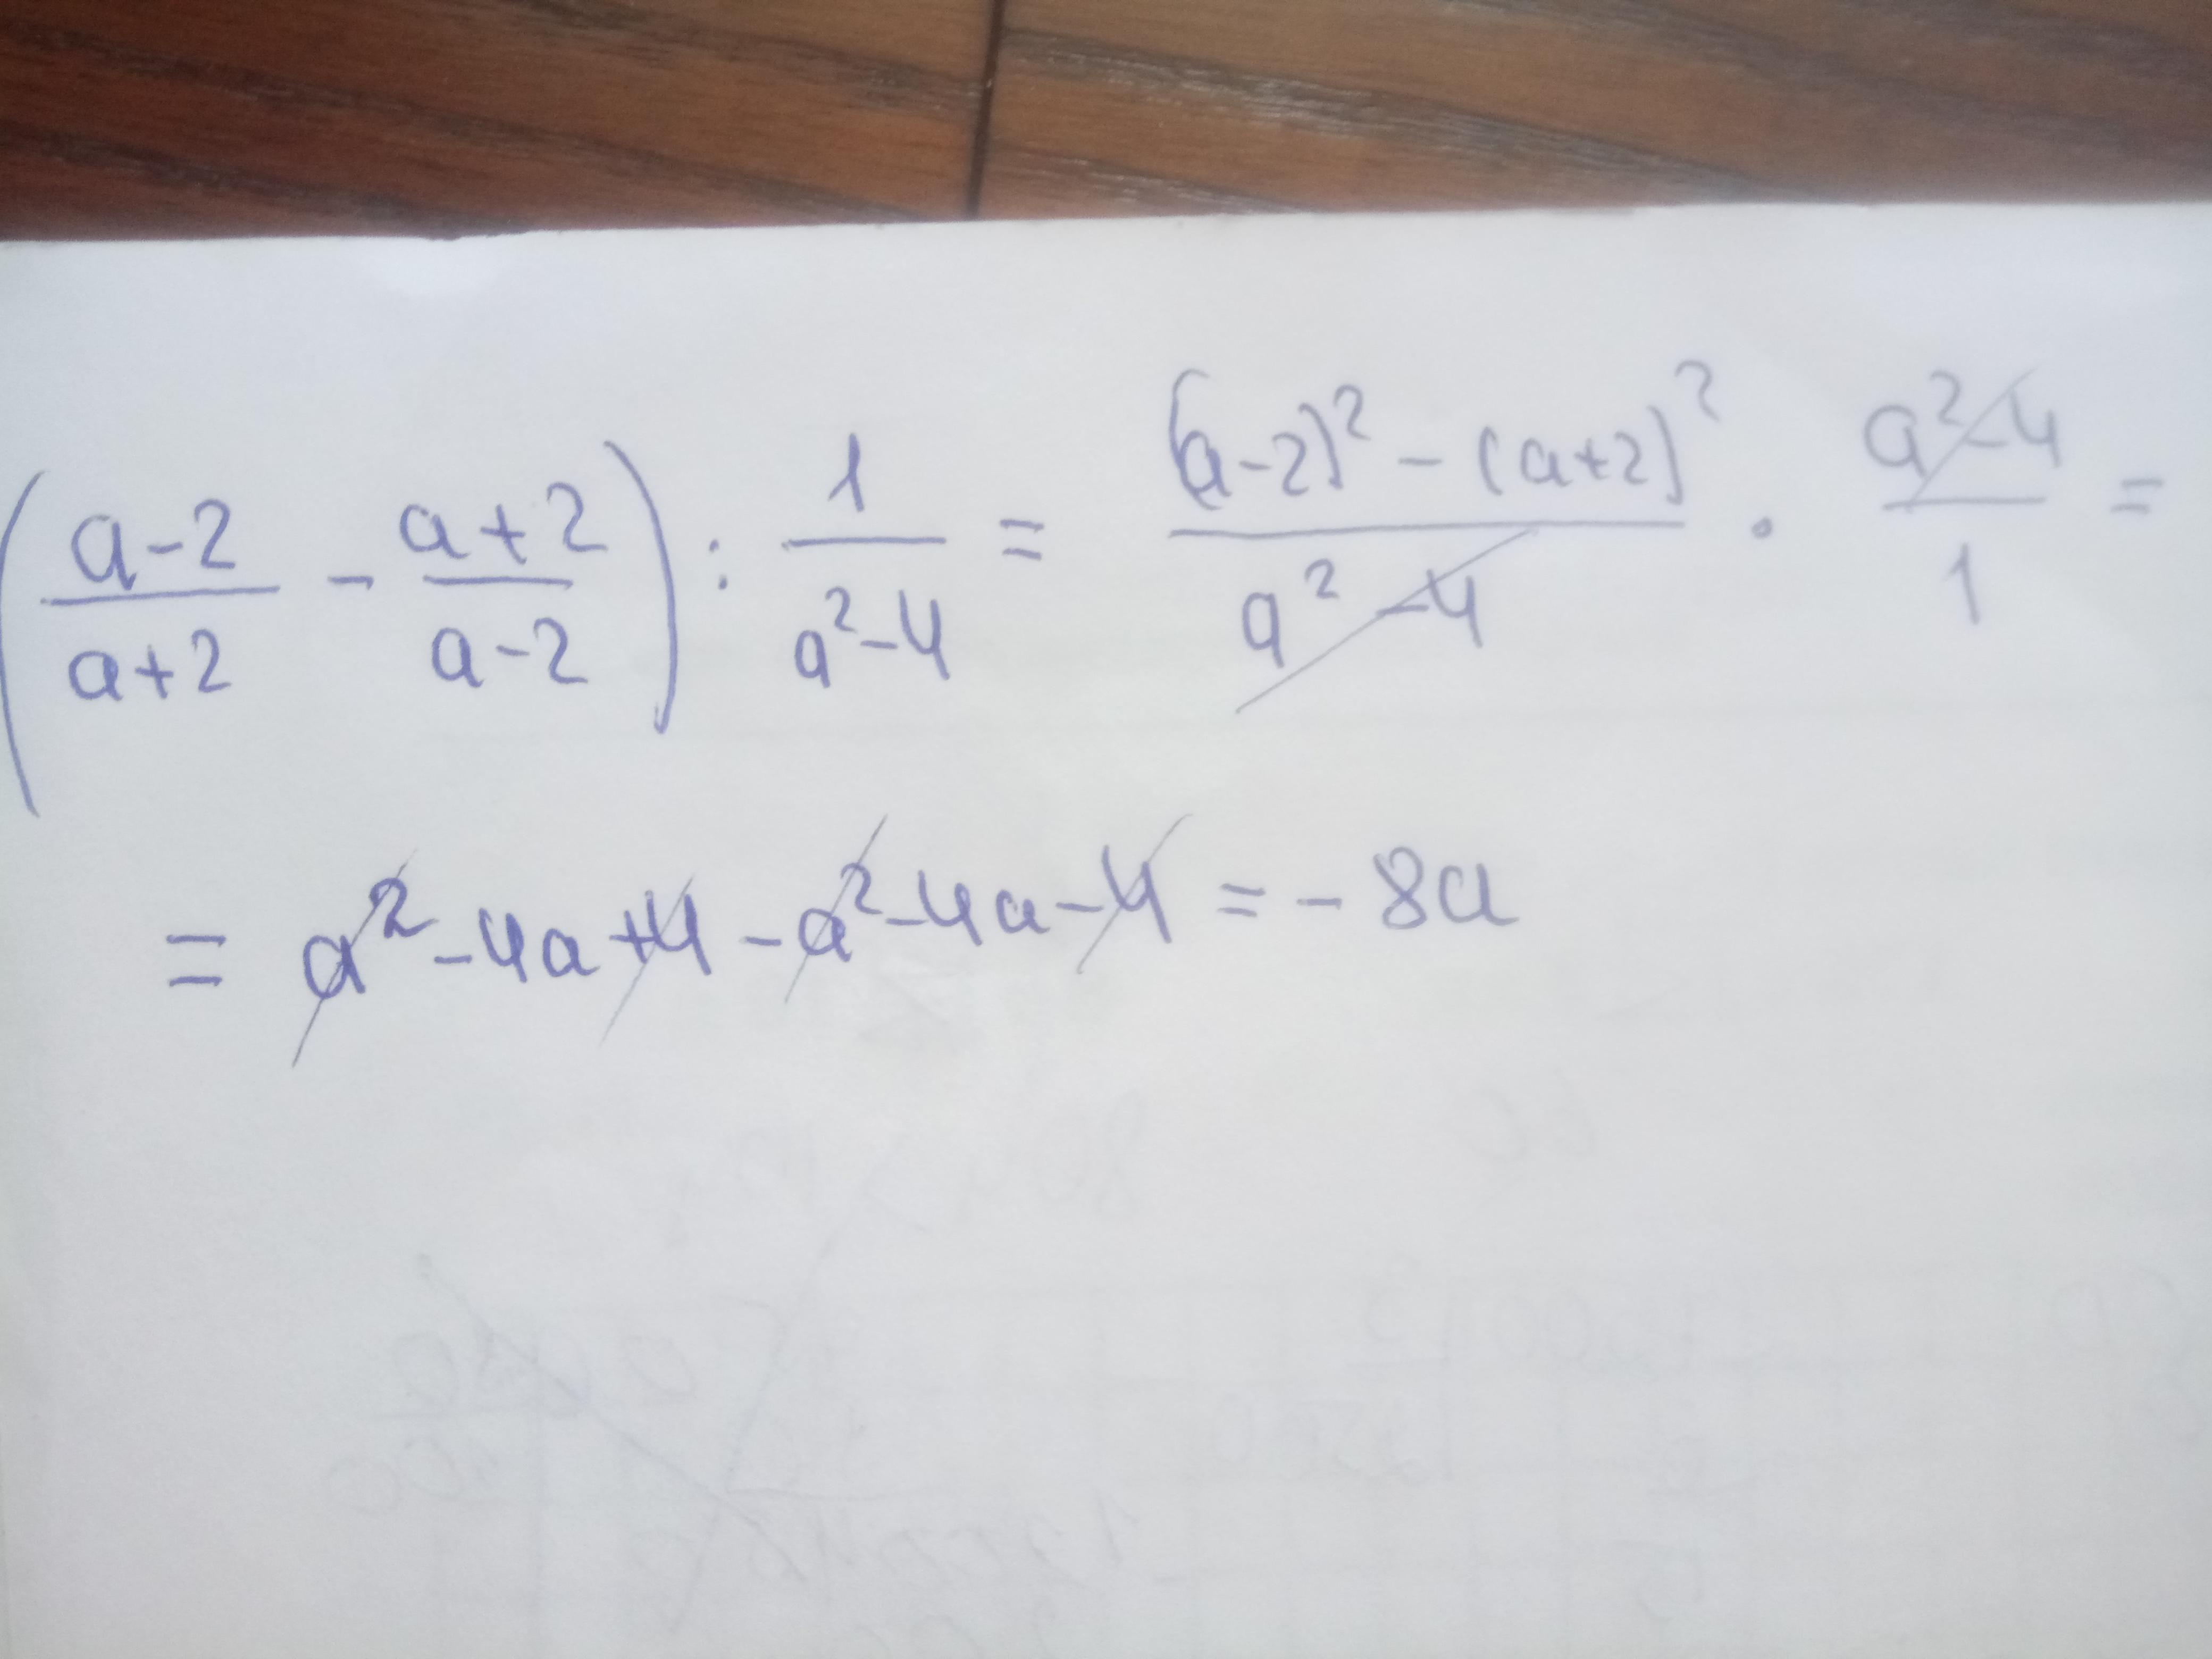 (a-2/a+2 - a+2/a-2) : 1/a²-4 = (a-2)² - (a+2)²/a²-4 · a²-4/1 =
= a² - 4a + 4 - a² - 4a - 4 = - 8a